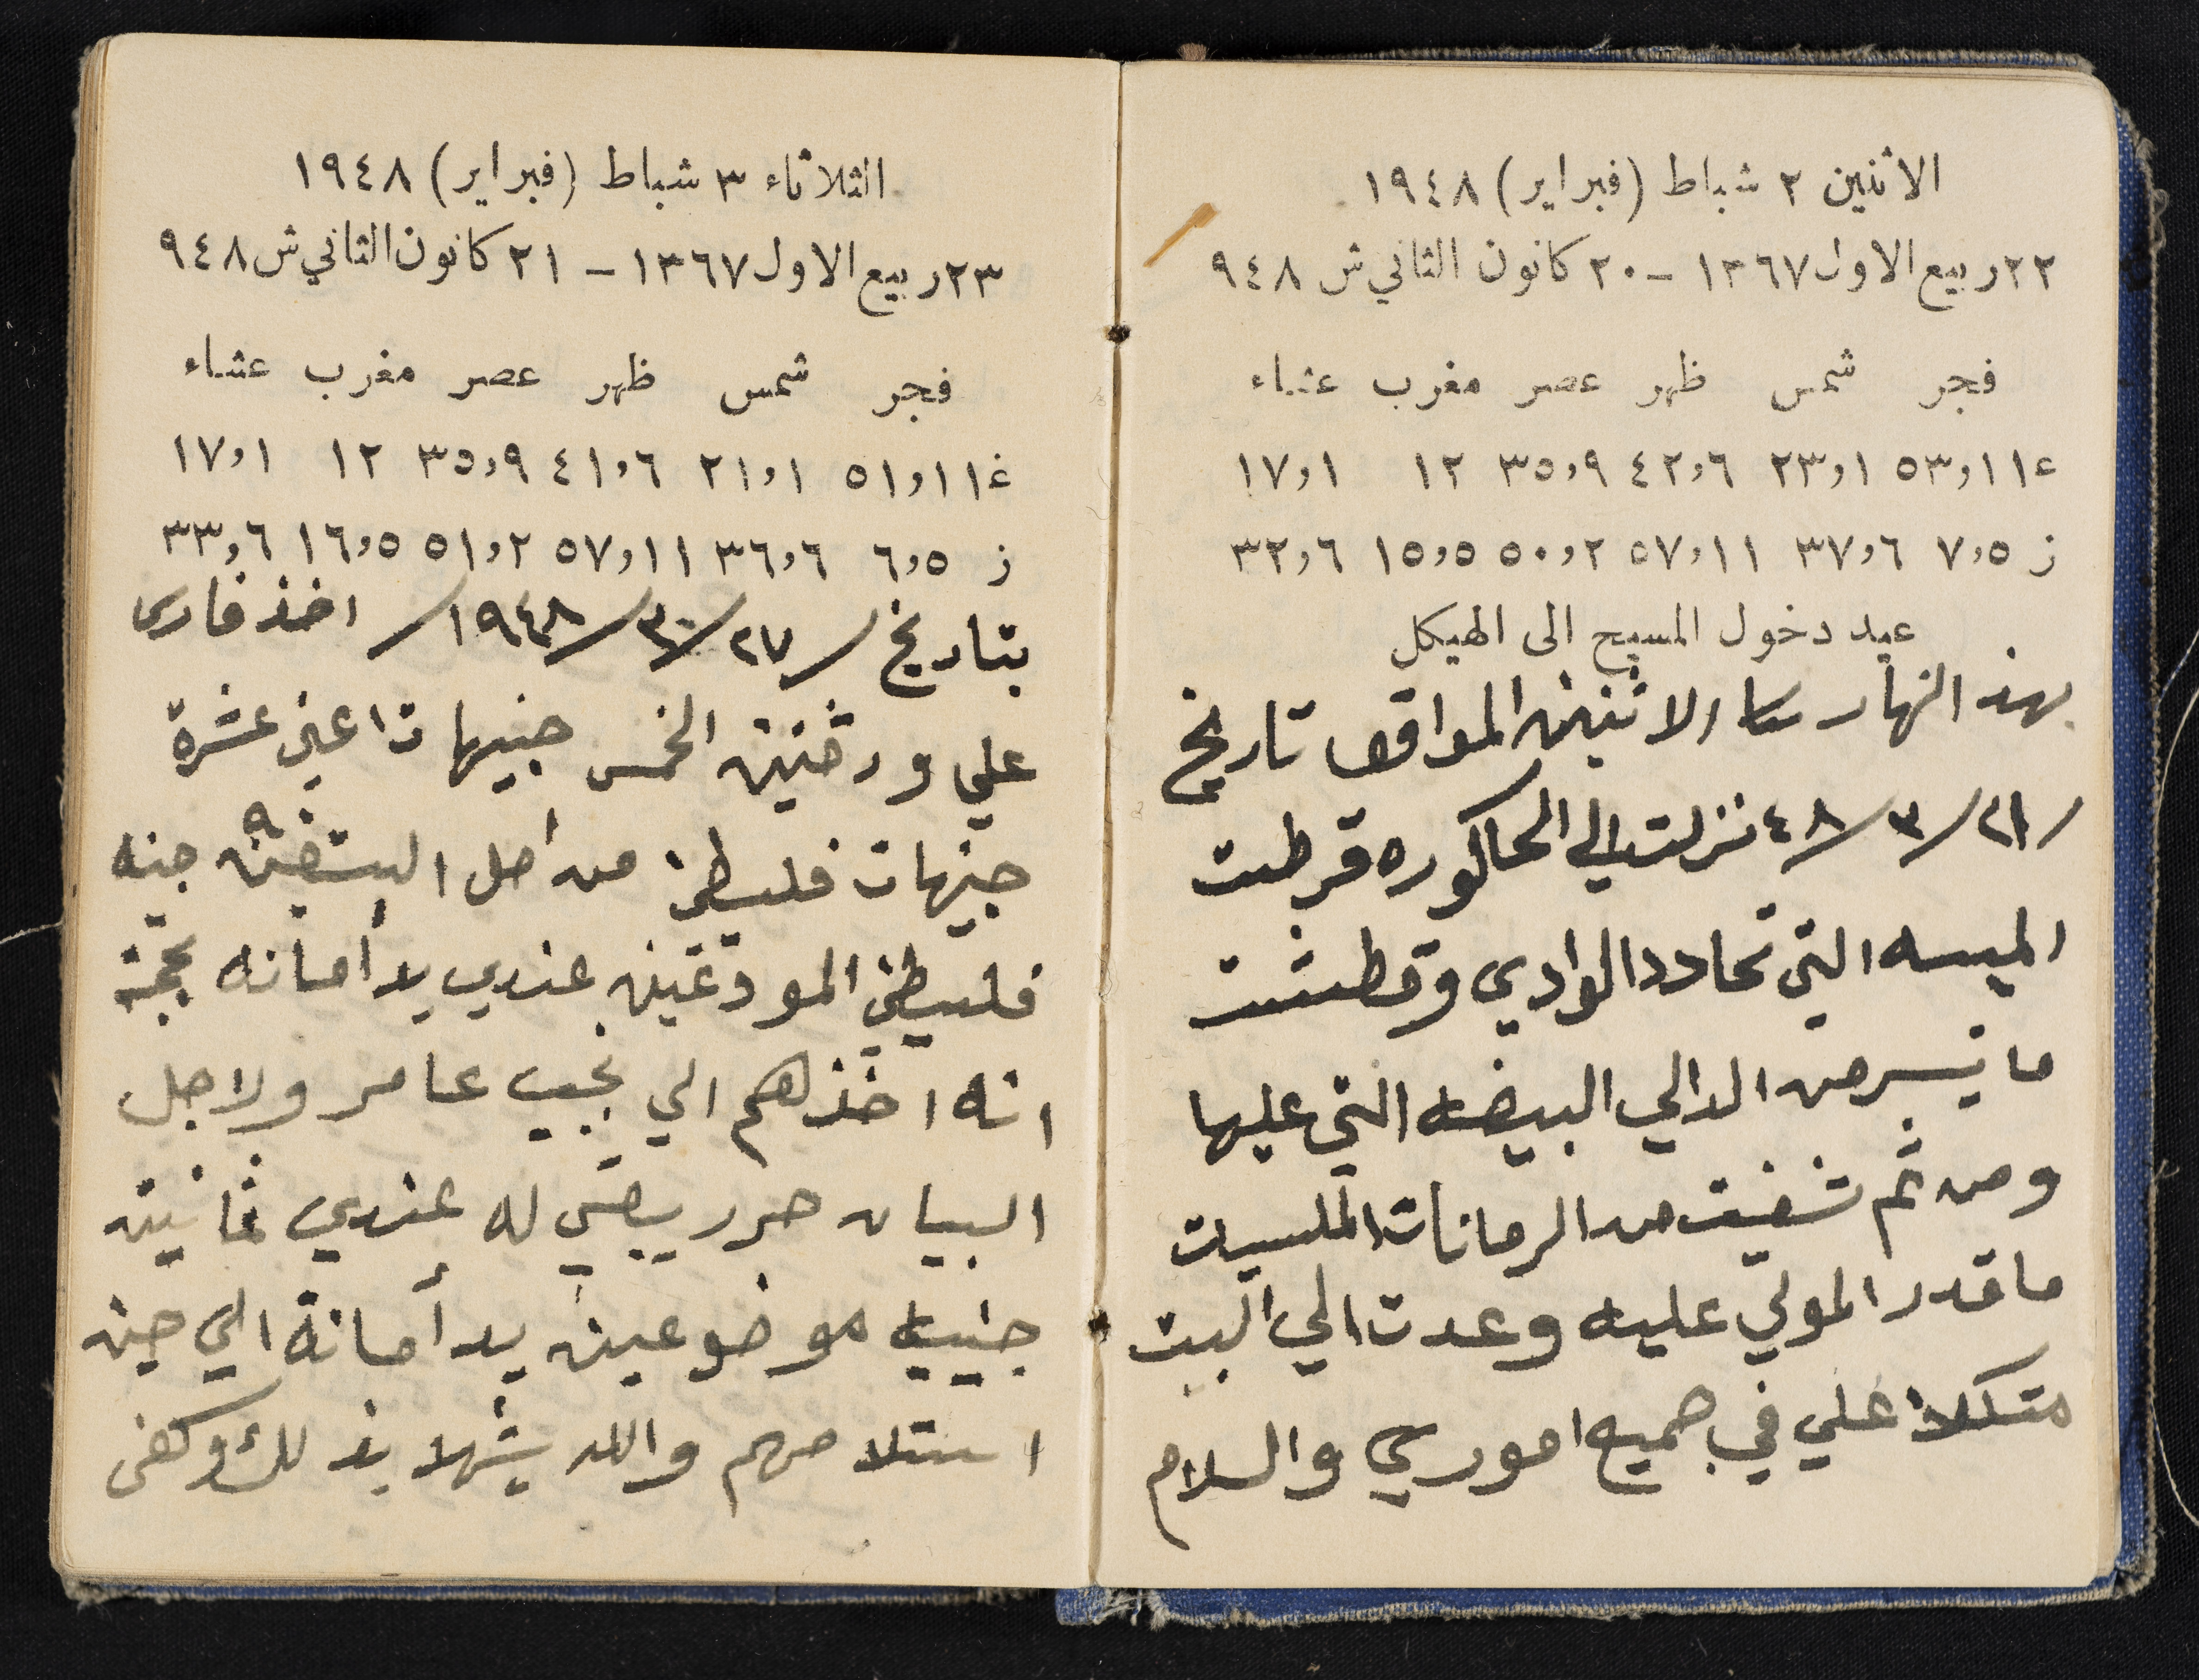 الاثنين ٢ شباط (فبراير) ١٩٤٨
٢٢ ربيع الاول ١٣٦٧ - ٢٠ كانون الثاني ش ٩٤٨
فجر شمس ظهر عصر مغرب عشاء
ع ١١,٥٣ ١,٢٣ ٦,٤٢ ٩,٣٥ ١٢ ١,١٧
ز ٥,٧ ٦,٣٧ ١١,٥٧ ٢,٥٠ ٥,١٥ ٦,٣٢
عيد دخول المسيح الى الهيكل
بهذ النهار الاثنين الموافق تاريخ
/٤٨/٣ نزلت الي الحاكوره قرطت
الميسه التي تحادد الوادي وقطشت
ما تيسر من الدالي البيضه التي عليها
ومن ثم شفيت من الرمانات الملسيات
ما قدر المولي عليه وعدت الي البيت
متكلا علي في جميع اموري والسلام
الثلاثاء ٣ شباط (فبراير) ١٩٤٨
٢٣ ربيع الاول ١٣٦٧ - ٢١ كانون الثاني ش ٩٤٨
فجر شمس ظهر عصر مغرب عشاء
غ ١١,٥١ ١,٢١ ٦,٤١ ٩,٣٥ ١٢ ١,١٧
ز ٥,٦ ٦,٣٦ ١١,٥٧ ٢,٥١ ٥,١٦ ٦,٣٣
بتاريخ /٢٧/٣/١٩٤٨/ اخذ فارس
علي ورقتين الخمس جنيهات اعني عشرة
جنيهات فلسطين من اصل جنيه
فلسطيني المودعين عندي يد أمانه بحجة
انه اخذهم الي نجيب عامر ولاجل
البيان حرر يبقي له عندي ثمانية
جنيه موضوعين يد أمانة الي حين
استلامهم والله يشهد بذلك وكفى